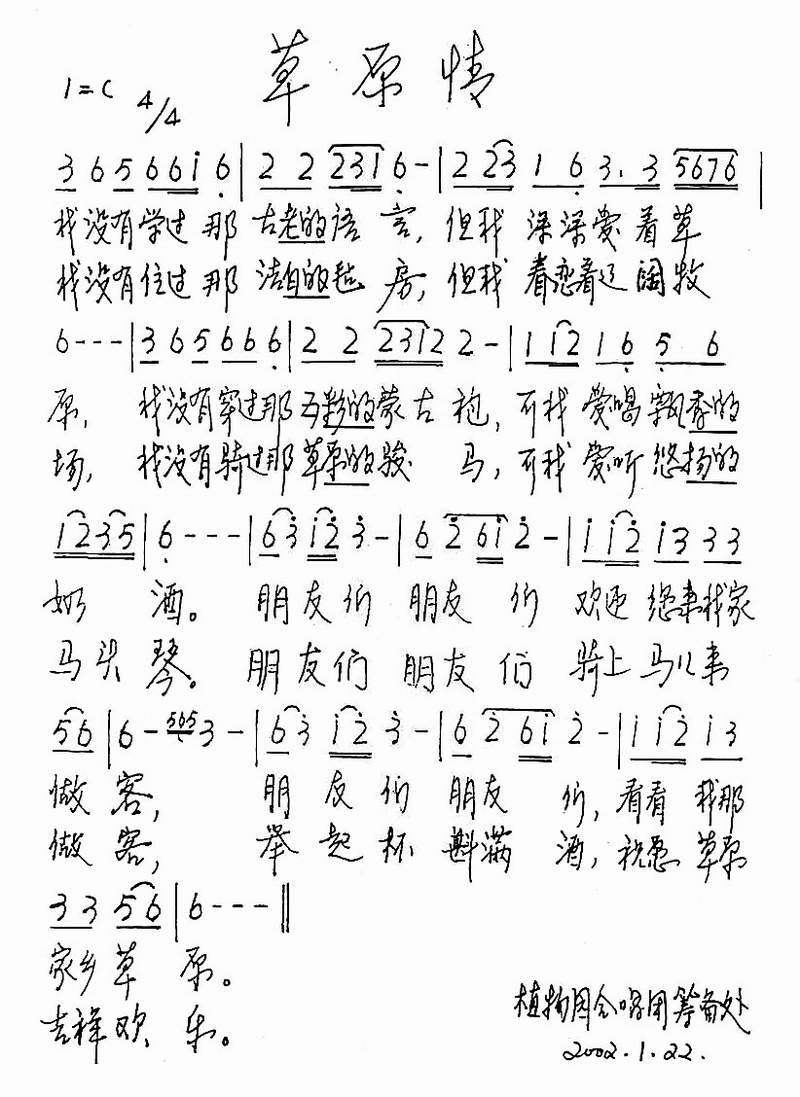 草原情
1=C 4/4
3 6 5 6 6 i 6 | 2 2 2 3 1 6 - | 2 2 3 1 6 3. 3 5 6 7 6 |
我没有学过那 古老的语言, 但我 深深爱着草
我没有住过那 洁白的毡房, 但我 眷恋着辽阔牧
6 - - - | 3 6 5 6 6 6 | 2 2 2 3 1 2 2 - | 1 1 2 1 6 5 6
原, 我没有穿过那五彩的蒙古袍, 可我 爱喝飘香的
场, 我没有骑过那草原的骏马, 可我 爱听悠扬的
1 2 3 5 | 6 - - - | 6 3 i 2 3 - | 6 2 6 i 2 - | i i 2 i 3 3 3
奶 酒。 朋友们 朋友们 欢迎您来我家
马头琴。 朋友们 朋友们 骑上马儿来
5 6 | 6 - 5 6 5 3 - | 6 3 i 2 3 - | 6 2 6 i 2 - | i i 2 i 3
做客, 朋友们 朋友们, 看看 我那
做客, 举起杯 斟满酒, 祝愿 草原
3 3 5 6 | 6 - - - ‖
家乡草 原。
吉祥欢 乐。
植物园合唱团筹备处
2002.1.22.